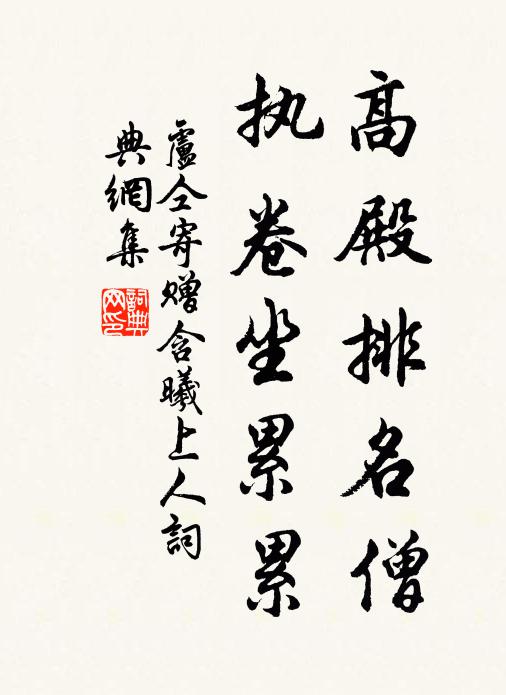 高殿排名僧
执卷坐累累
盧仝寄赠含曦上人詞
典網集
詞典網印